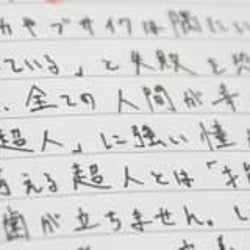 やブサイクは隅にい
ている」と失敗を恐
、全ての人間が手
超人」に強い憧
える超人とは「才
歯が立ちません。し